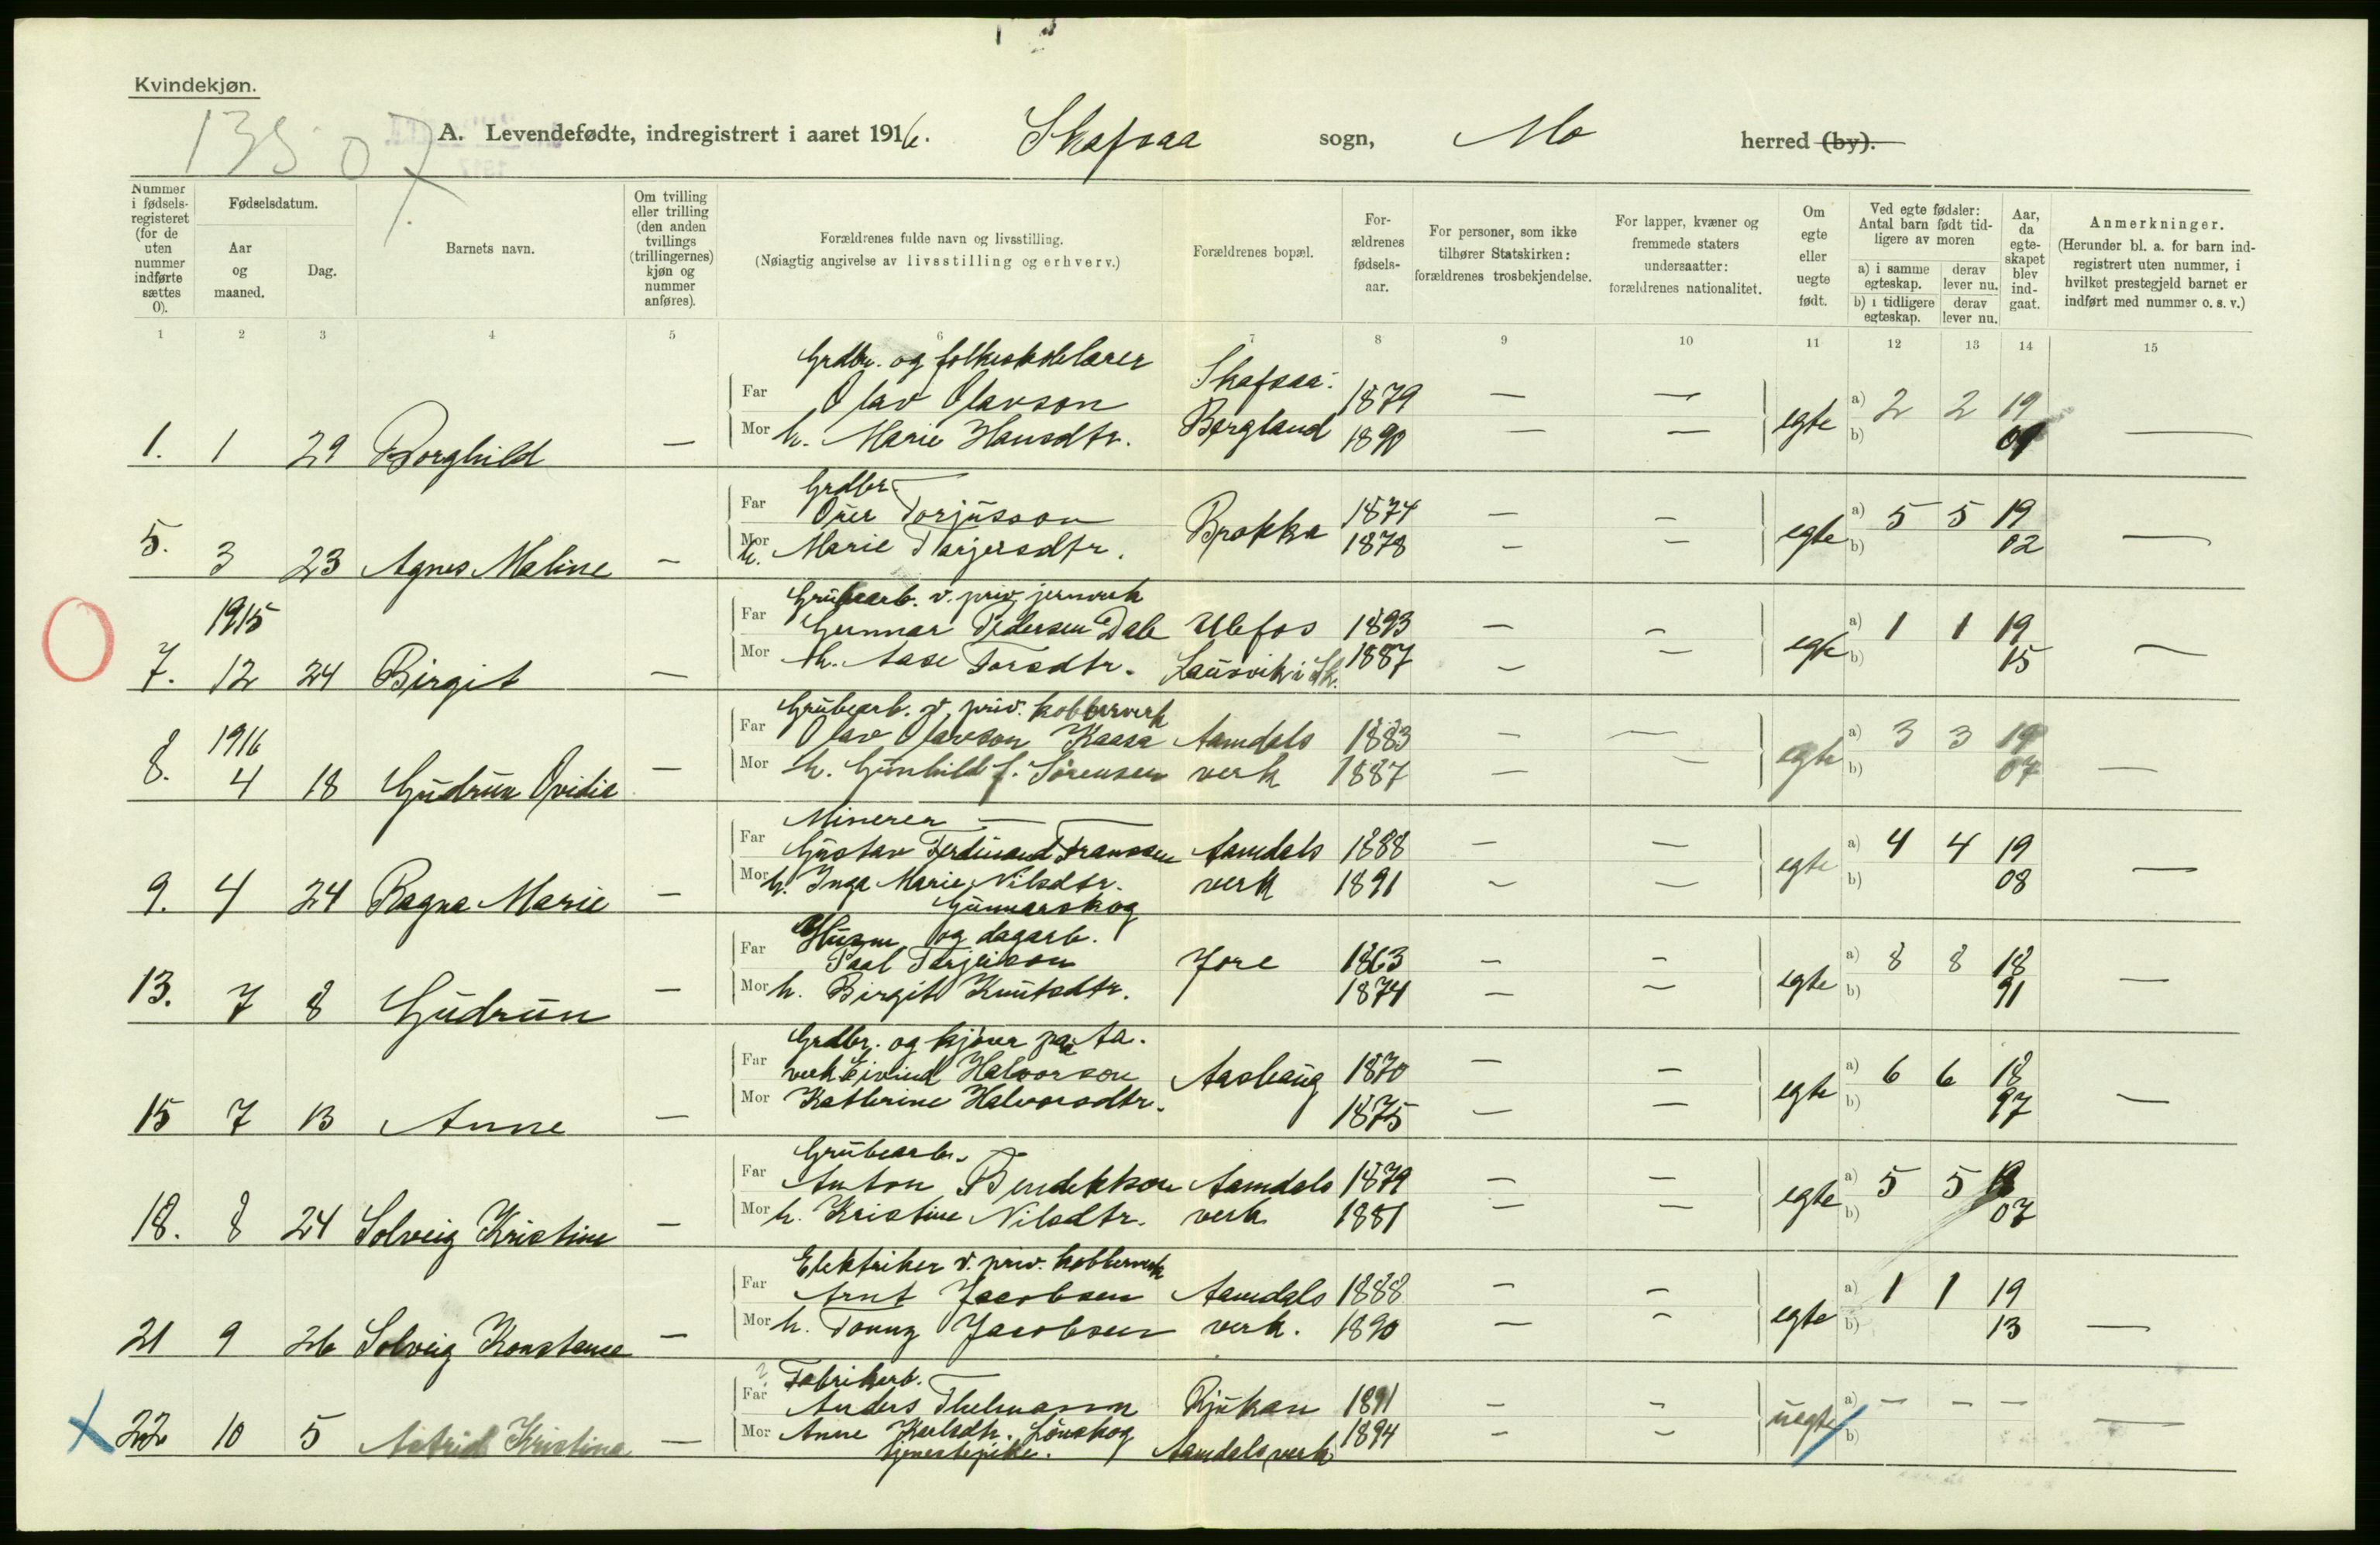 Kvindekjøn.
135 07
A. Levendefødte, indregistrert i aaret 1916. Skafsaa sogn, Mo herred (by).
Nummer i fødsels-registeret (for de uten nummer indførte sættes 0).
Fødselsdatum.
Aar og maaned.
Dag.
Barnets navn.
Om tvilling eller trilling (den anden tvillings (trillingernes) kjøn og nummer anføres).
Forældrenes fulde navn og livsstilling.
(Nøiagtig angivelse av livsstilling og erhverv.)
Forældrenes bopæl.
For-ældrenes fødsels-aar.
For personer, som ikke tilhører Statskirken: forældrenes trosbekjendelse.
For lapper, kvæner og fremmede staters undersaatter: forældrenes nationalitet.
Om egte eller uegte født.
Ved egte fødsler: Antal barn født tid-ligere av moren
a) i samme egteskap. derav lever nu.
b) i tidligere egteskap. derav lever nu.
Aar, da egte-skapet blev ind-gaat.
Anmerkninger.
(Herunder bl. a. for barn ind-registrert uten nummer, i hvilket prestegjeld barnet er indført med nummer o. s. v.)
1 2 3 4 5 6 7 8 9 10 11 12 13 14 15
Grdbr. og folkeskolelærer
Far Olav Olavson Skafsaa: 1879 — — a) 2 2 19
Mor h. Marie Hansdtr. Bergland 1890 — — egte b) 09
1. 1 29 Borghild — —
Grdbr.
Far Torjusson Brokka 1874 — — a) 5 5 19
Mor h. Marie Tarjeisdtr. 1878 — — egte b) 02
5. 3 23 Agnes Maline — —
Grubearb. v. priv. jernverk
1915
Far Gunnar Pedersen Dale Ulefos 1893 — — a) 1 1 19
Mor h. Aase Torsdtr. Lausvik i Sk. 1887 — — egte b) 15
7. 12 24 Birgit — —
Grubearb. v. priv. kobberverk
1916
Far Olav Olavson Kaasa Aamdals 1883 — — a) 3 3 19
Mor h. Gunhild f. Sørensen verk 1887 — — egte b) 07
8. 4 18 Gudrun Ovidia — —
Minerer
Far Gustav Ferdinand Fransson Aamdals 1888 — — a) 4 4 19
Mor h. Inga Marie Nilsdtr. verk 1891 — — egte b) 08
Gunnarskog
9. 4 24 Ragna Marie — —
Husm. og dagarb.
Far Paal Tarjeison Jore 1863 — — a) 8 8 18
Mor h. Birgit Knutsdtr. 1874 — — egte b) 91
13. 7 8 Gudrun — —
Grdbr. og kjører paa Aa.
Far verk Eivind Halvorson Aashaug 1870 — — a) 6 6 18
Mor Kathrine Halvorsdtr. 1875 — — egte b) 97
15 7 13 Anne — —
Grubearb.
Far Anton Bendikson Aamdals 1879 — — a) 5 5 19
Mor h. Kristine Nilsdtr. verk 1881 — — egte b) 07
18. 8 24 Solveig Kristine —
Elektriker v. priv. kobberverk
Far Arnt Jacobsen Aamdals 1888 — — a) 1 1 19
Mor h. Tonny Jacobsen verk. 1890 — — egte b) 13
21 9 26 Solveig Konstanse — —
? Fabrikarb.
Far Anders Thelmann Rjukan 1891 — — a) — — —
Mor Anne Karlsdtr. Lønskog 1894 — — uegte b)
tjenestepike. Aamdals verk
22 10 5 Astrid Kristina — —